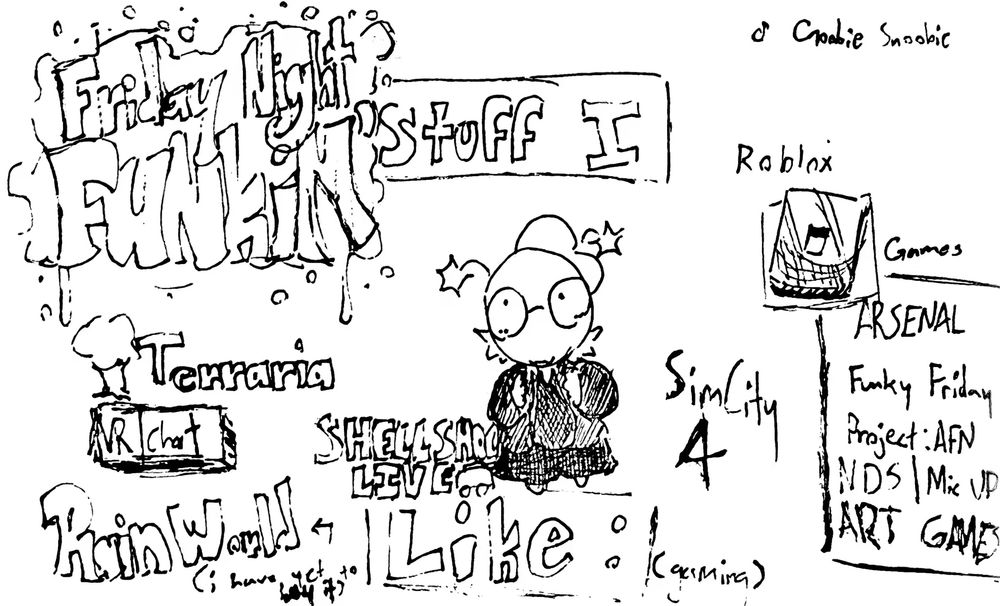 Friday Night
Funkin'
Stuff I
Croobie Snoobie
Roblox
Games
ARSENAL
Funky Friday
Project: AFN
NDS | Mic UP
ART GAMES
Terraria
VR Chat
SimCity
4
SHELLSHOC
LIVE
Rain World
(i have yet to
buy it)
Like :
(gaming)